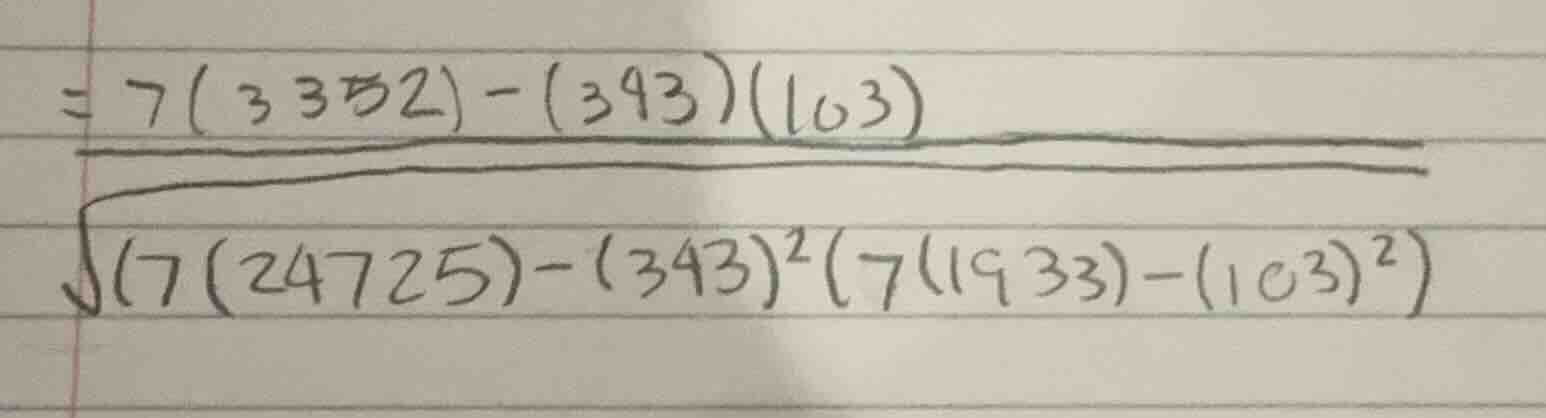 = 7(3352) - (343)(103)
√(7(24725) - (343)²(7(1933) - (103)²)